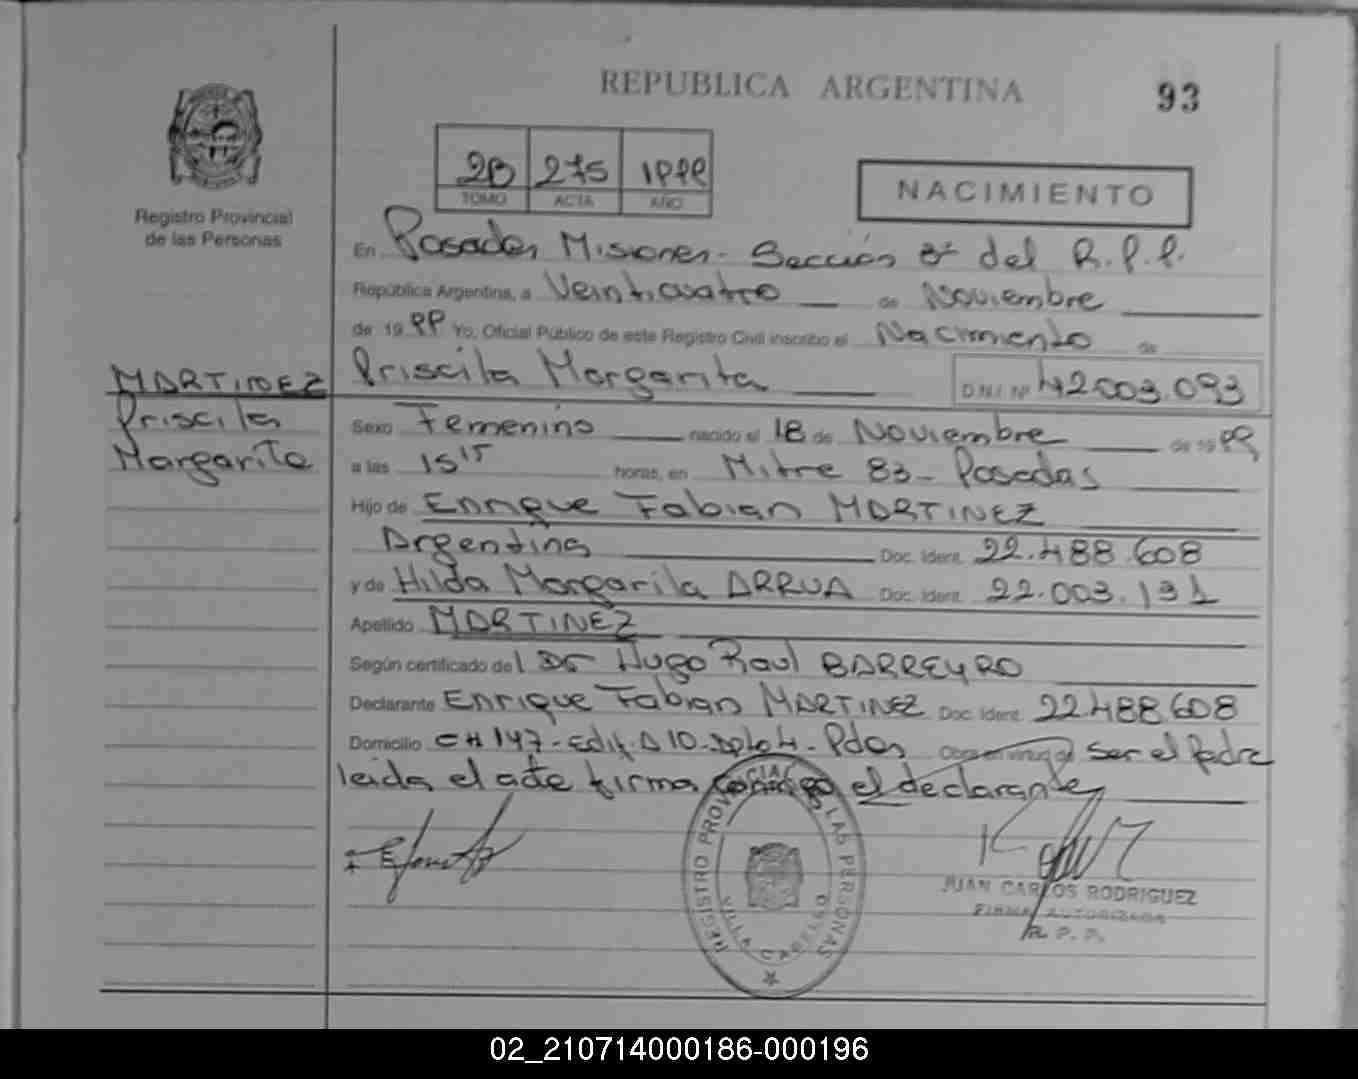 REPUBLICA ARGENTINA
93
Registro Provincial
de las Personas
2B 275 1999
TOMO ACTA AÑO
NACIMIENTO
En Posadas Misiones - Sección 3ª del R.P.P.
República Argentina, a Veinticuatro de Noviembre
de 1999 Yo, Oficial Público de este Registro Civil inscribo el Nacimiento de
Priscila Margarita D.N.I. Nº 42.003.093
MARTINEZ
Priscila
Margarita
Sexo Femenino nacido el 18 de Noviembre de 1999
a las 15 15 horas, en Mitre 83 - Posadas
Hijo de Enrique Fabian MARTINEZ
Argentina Doc. Ident. 22.488.608
y de Hilda Margarita ARRUA Doc. Ident. 22.003.131
Apellido MARTINEZ
Según certificado del Dr Hugo Raul BARREYRO
Declarante Enrique Fabian MARTINEZ Doc. Ident. 22.488.608
Domicilio CH 147 - Edif. A 10 - Dpto 4 - Pdas Obra en virtud de ser el padre
leida el acta firma conmigo el declarante
REGISTRO PROVINCIAL DE LAS PERSONAS
VILLA CABELLO
JUAN CARLOS RODRIGUEZ
FIRMA AUTORIZADA
R. P. P.
02_210714000186-000196